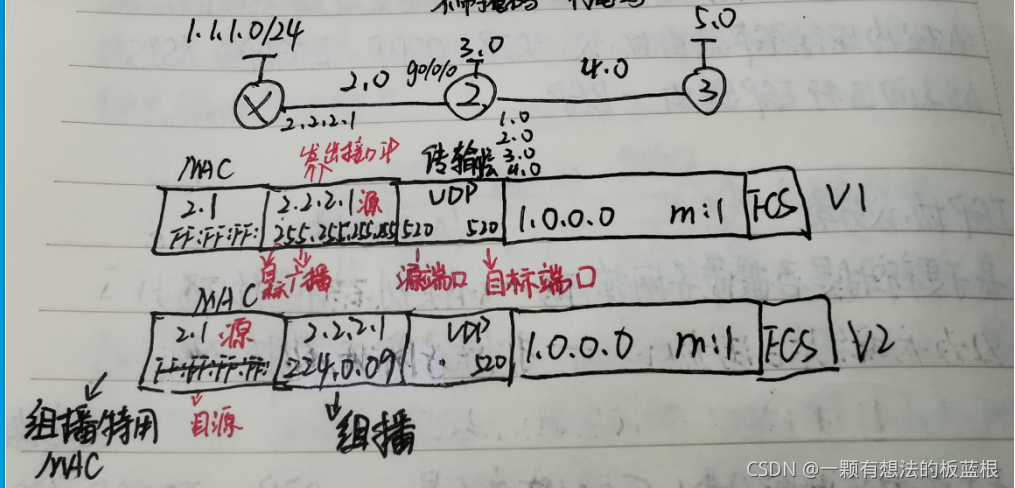 1.1.1.0/24
3.0
5.0
2.0
g0/0/0
4.0
X
2
3
2.2.2.1
1.0
2.0
3.0
4.0
发出接口IP
传输层
MAC
2.1
2.2.2.1 源
UDP
1.0.0.0 m:1
FCS
V1
FF:FF:FF:
255.255.255.255
520 520
目标
广播
源端口
目标端口
MAC
2.1 源
2.2.2.1
UDP
1.0.0.0 m:1
FCS
V2
FF:FF:FF:FF:
224.0.09
520
组播特用
MAC
目源
组播
CSDN @一颗有想法的板蓝根